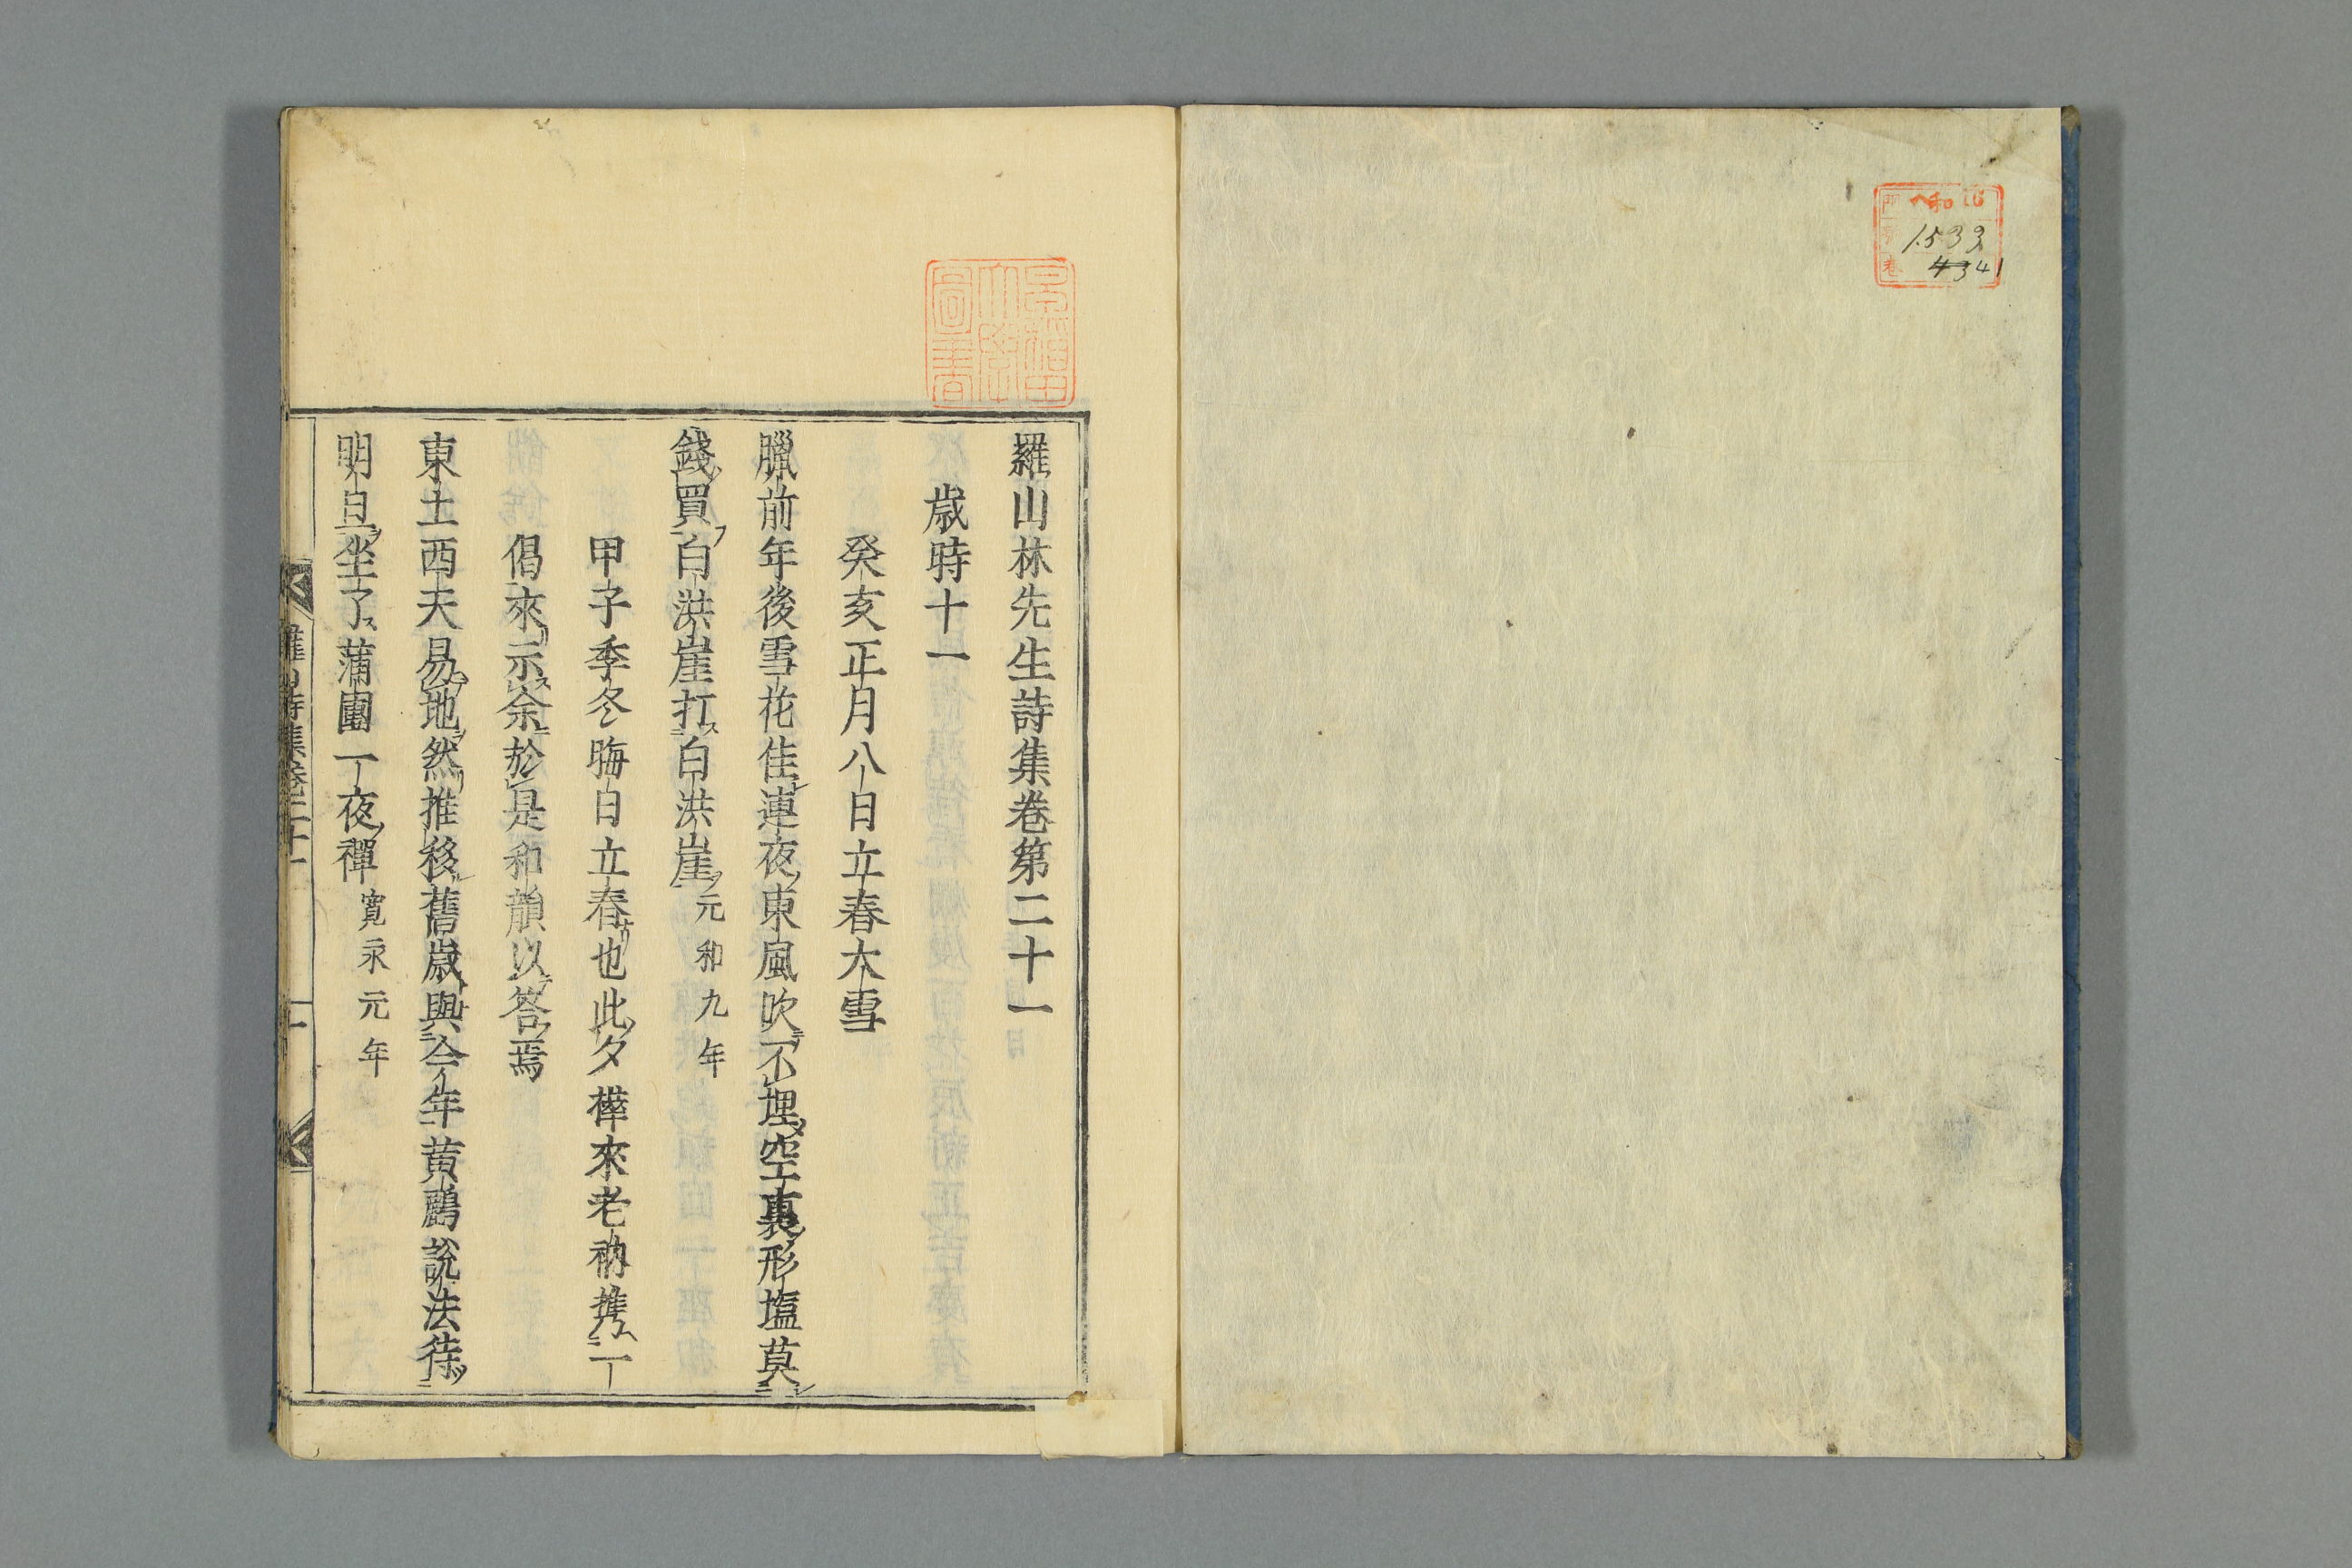 1533
4341
羅山林先生詩集卷第二十一
歲時十一
癸亥正月八日立春大雪
臘前年後雪花佳連夜東風吹不埋空裏形塩莫
錢買白洪崖打白洪崖元和九年
甲子季冬晦日立春也此夕樺來老衲携一
偈來示余於是和韻以答焉
東土西天易地然推移舊歲與今年黃鸝說法待
明旦坐了蒲團一夜禪寬永元年
羅山詩集卷二十一
一